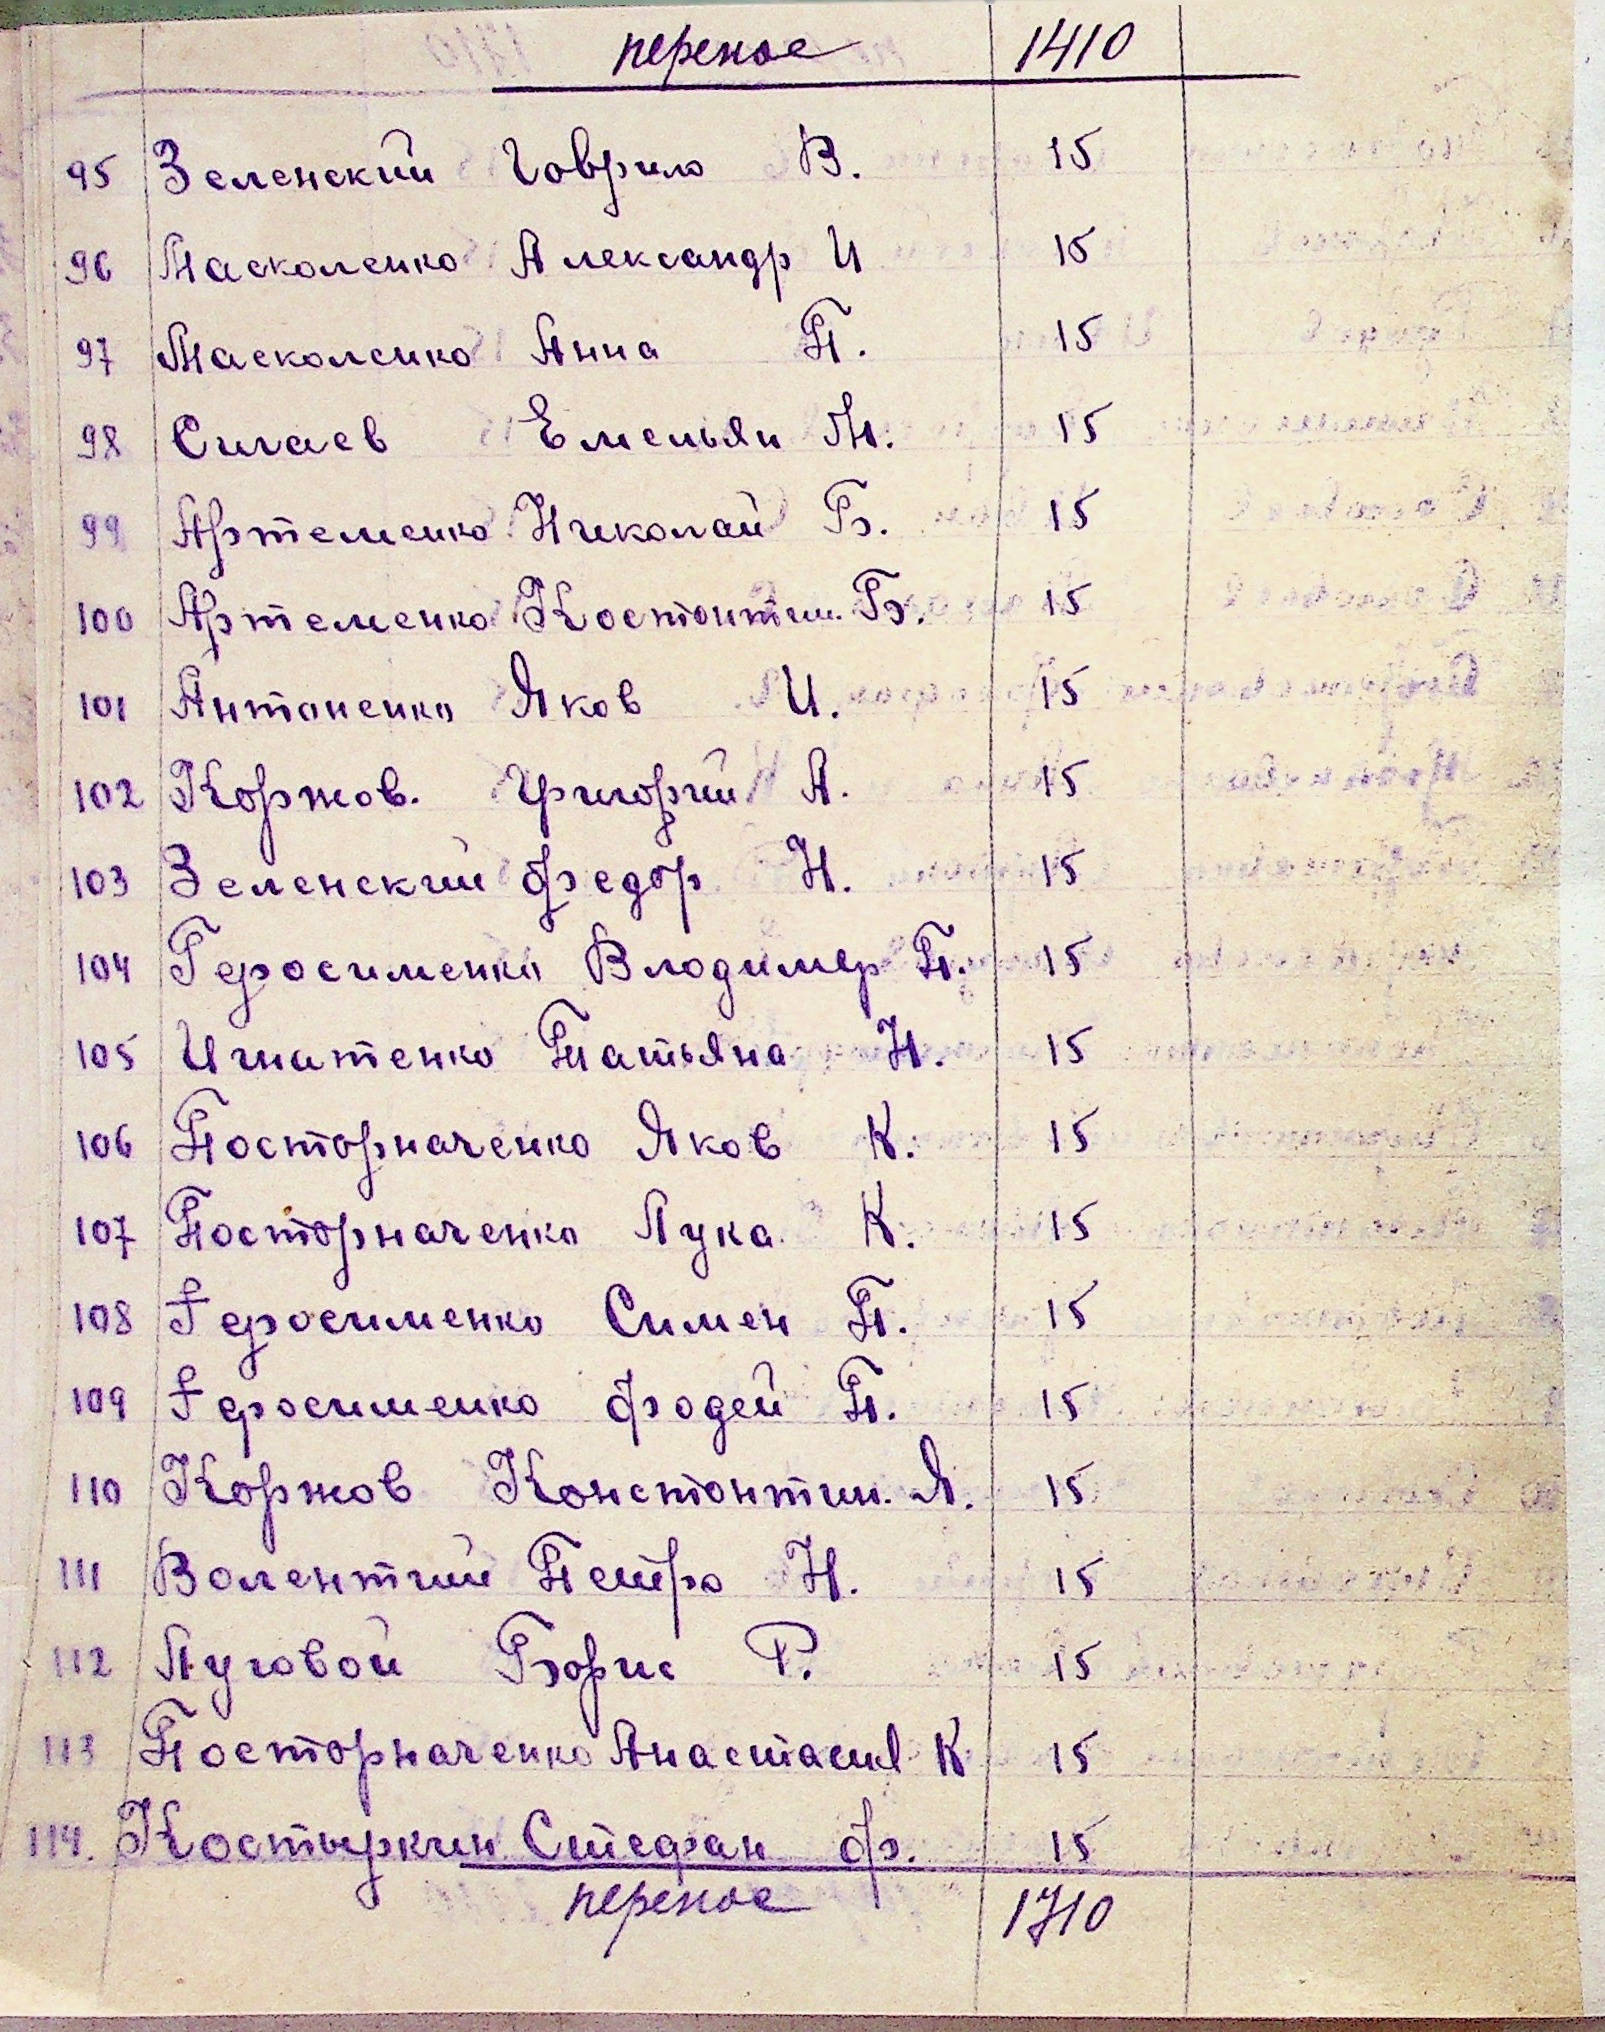 перенос 1410
95 Зеленский Говрило В. 15
96 Масколенко Александр И 15
97 Масколенко Анна П. 15
98 Сигаев Емельян М. 15
99 Артеменко Николай Б. 15
100 Артеменко Костонтин. Б. 15
101 Антоненко Яков И. 15
102 Коржов. Григорий А. 15
103 Зеленский Федор Н. 15
104 Геросименко Влодимер П. 15
105 Игнатенко Татьяна Н. 15
106 Посторначенко Яков К. 15
107 Посторначенко Лука К. 15
108 Геросименко Симен П. 15
109 Геросименко Фодей П. 15
110 Коржов Констонтин. Я. 15
111 Волентий Петро Н. 15
112 Луговой Борис Г. 15
113 Посторначенко Анастасия К 15
114. Костыркин Стефан Ф. 15
перенос 1710